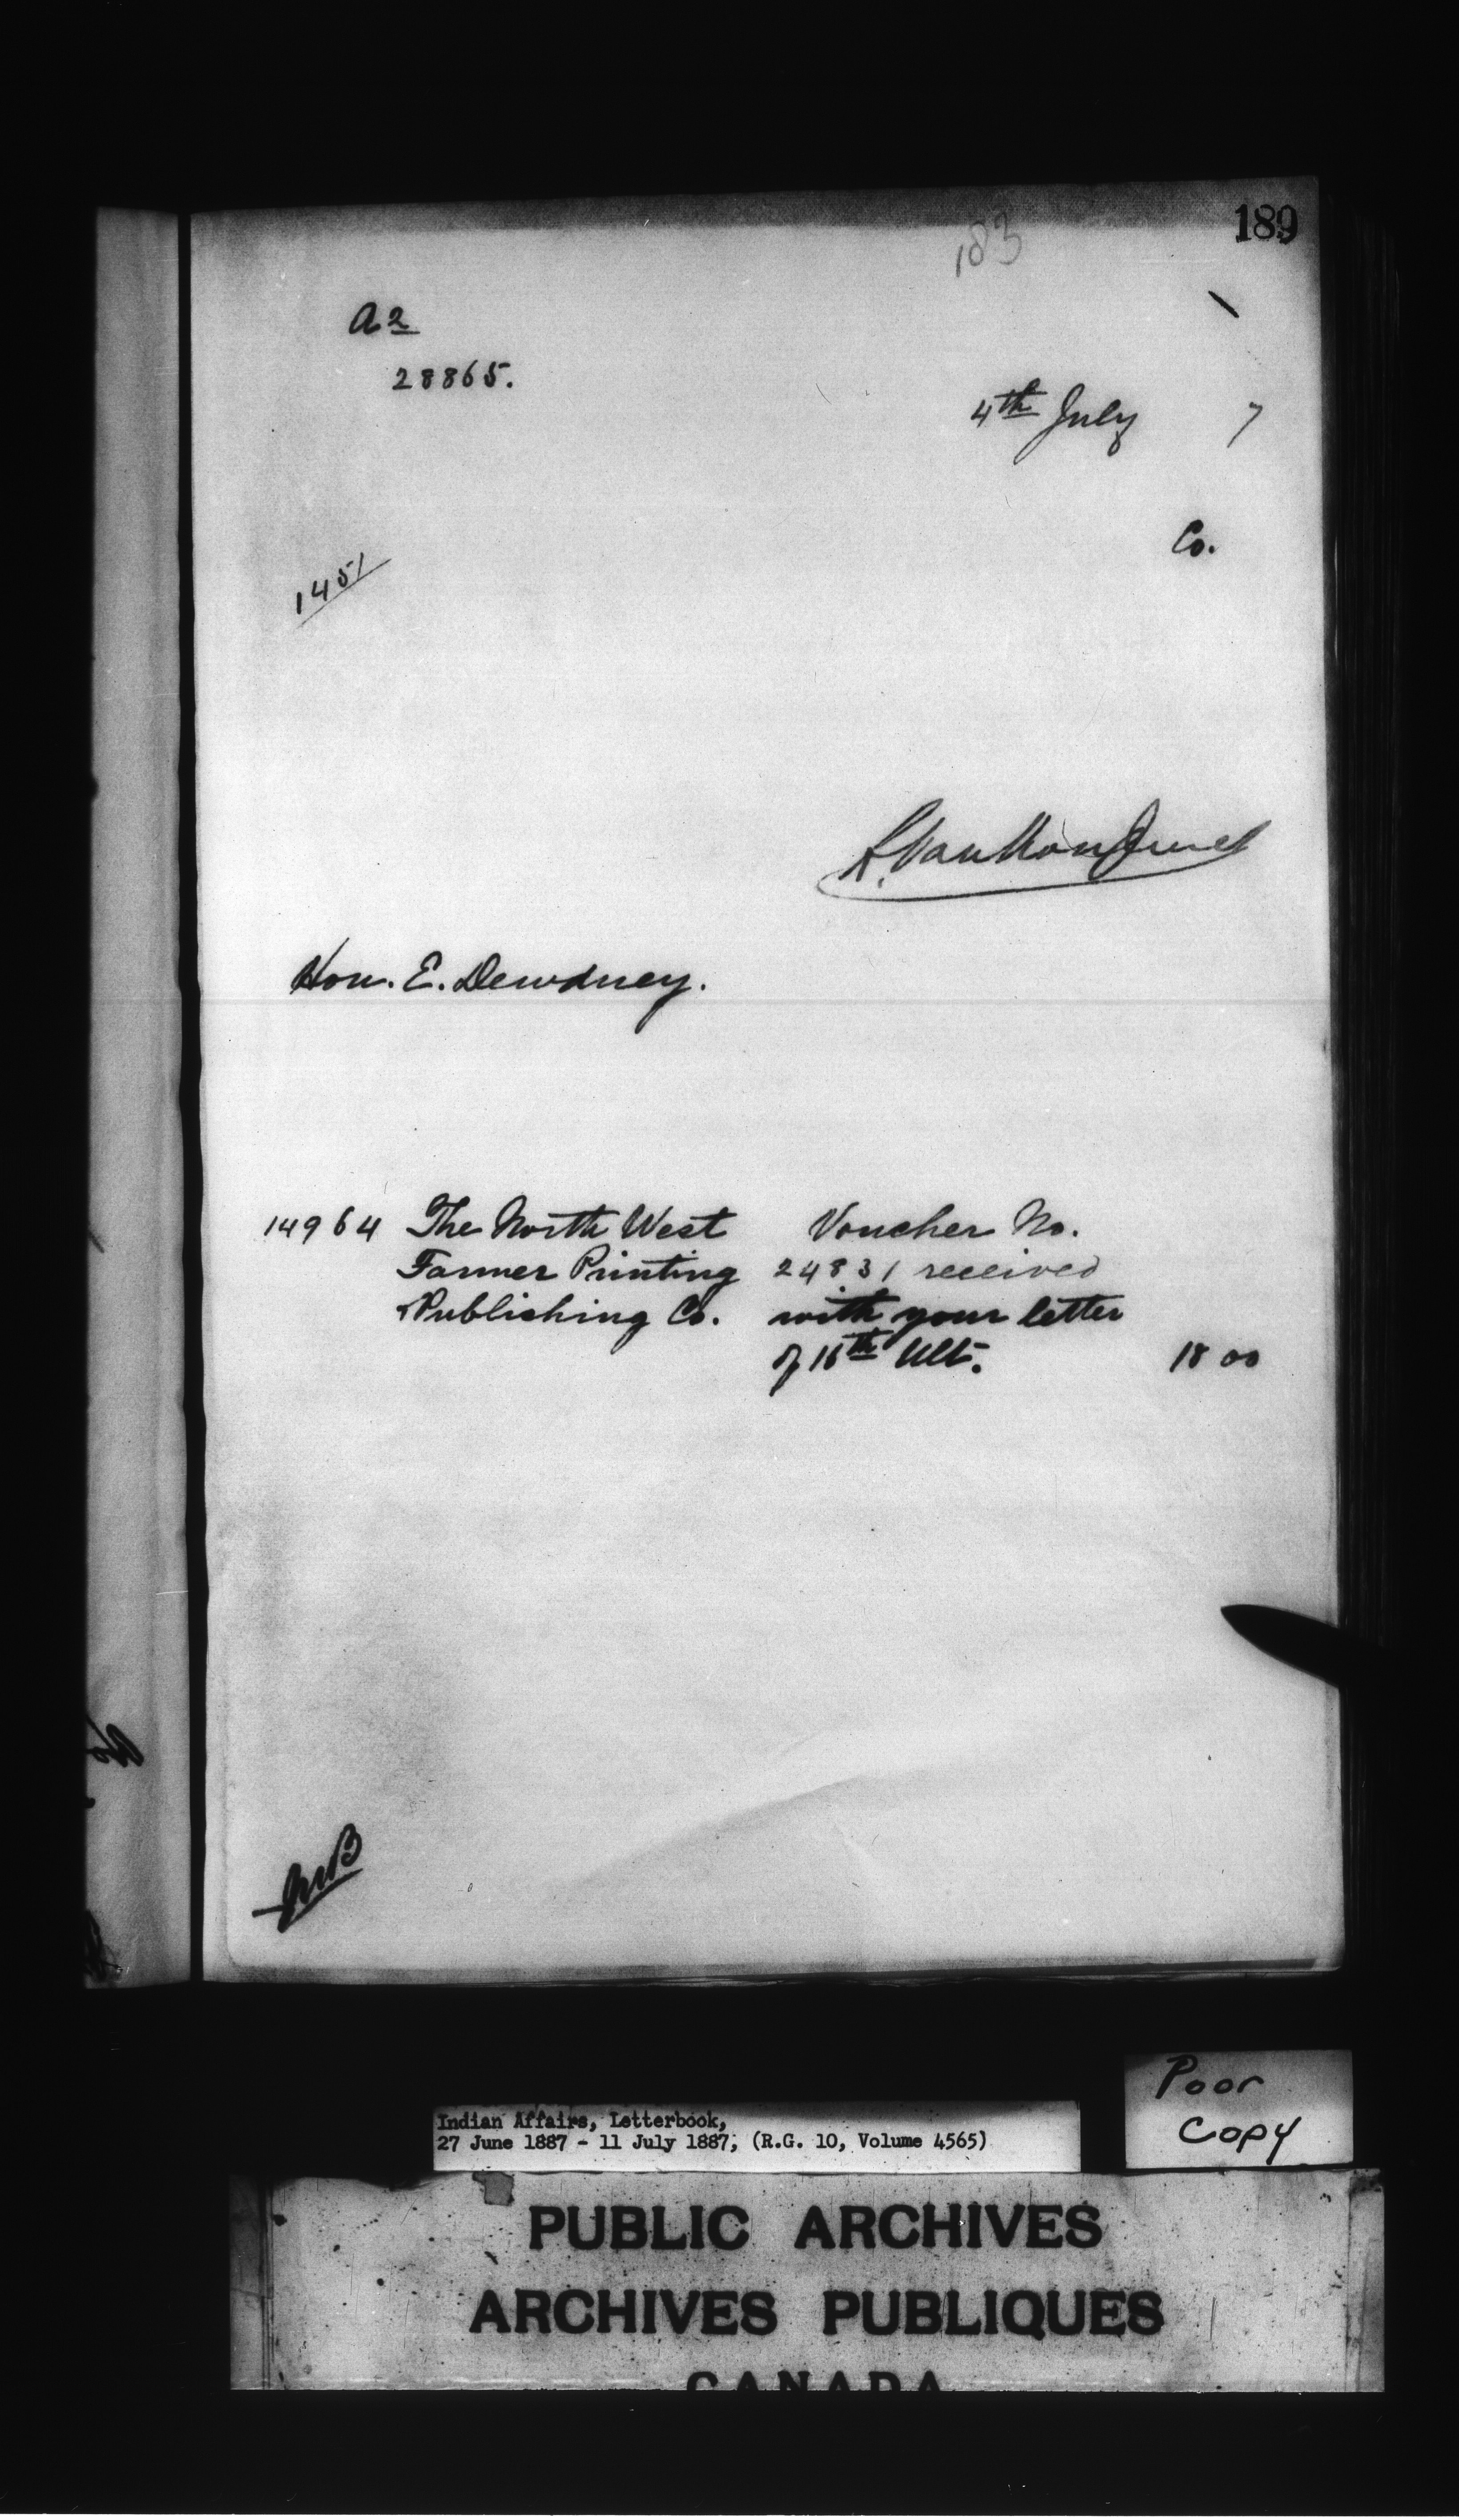 189
183
a2
28865.
4th July 7
Co.
1451
L. VanKoughnet
Hon. E. Dewdney.
14964 The North West Voucher No.
Farmer Printing 24831 received
& Publishing Co. with your letter
of 16th Ult. 18 00
Poor
Copy
Indian Affairs, Letterbook,
27 June 1887 - 11 July 1887, (R.G. 10, Volume 4565)
PUBLIC ARCHIVES
ARCHIVES PUBLIQUES
CANADA